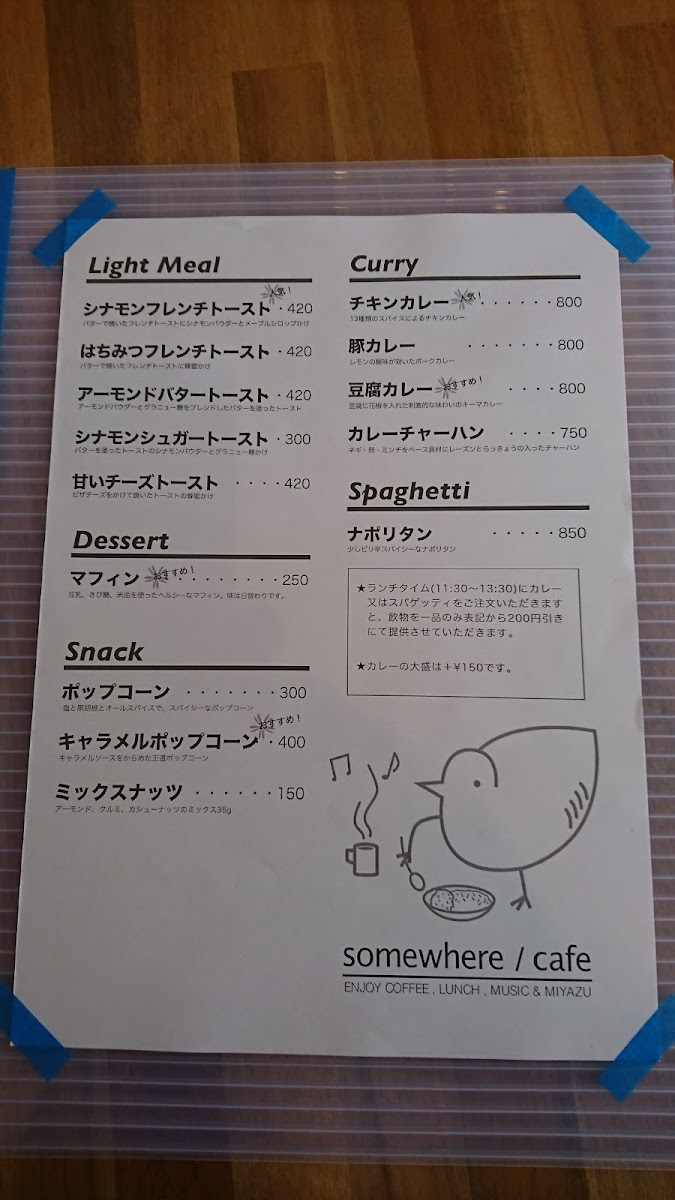 Light Meal
人気!
シナモンフレンチトースト・420
バターで焼いたフレンチトーストにシナモンパウダーとメープルシロップかけ
はちみつフレンチトースト・420
バターで焼いたフレンチトーストに蜂蜜かけ
アーモンドバタートースト・420
アーモンドパウダーとグラニュー糖をブレンドしたバターを塗ったトースト
シナモンシュガートースト・300
バターを塗ったトーストのシナモンパウダーとグラニュー糖かけ
甘いチーズトースト ・・・・420
ピザチーズをかけて焼いたトーストの蜂蜜かけ
Dessert
マフィン おすすめ! ・・・・・・・・250
豆乳、きび糖、米油を使ったヘルシーなマフィン。味は日替わりです。
Snack
ポップコーン ・・・・・・・300
塩と黒胡椒とオールスパイスで、スパイシーなポップコーン
おすすめ!
キャラメルポップコーン・400
キャラメルソースをからめた王道ポップコーン
ミックスナッツ ・・・・・・150
アーモンド、クルミ、カシューナッツのミックス35g
Curry
チキンカレー 人気! ・・・・・・800
13種類のスパイスによるチキンカレー
豚カレー ・・・・・・・800
レモンの酸味が効いたポークカレー
豆腐カレー おすすめ! ・・・・800
豆腐に花椒を入れた刺激的な味わいのキーマカレー
カレーチャーハン ・・・・750
ネギ・卵・ミンチをベース具材にレーズンとらっきょうの入ったチャーハン
Spaghetti
ナポリタン ・・・・・850
少しピリ辛スパイシーなナポリタン
★ランチタイム(11:30〜13:30)にカレー
又はスパゲッティをご注文いただきます
と、飲物を一品のみ表記から200円引き
にて提供させていただきます。
★カレーの大盛は+¥150です。
somewhere / cafe
ENJOY COFFEE , LUNCH , MUSIC & MIYAZU